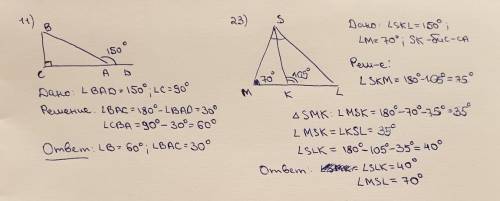 11)
B
150°
C A D
Дано: ∠BAD=150°; ∠C=90°
Решение: ∠BAC=180°-∠BAD=30°
∠CBA=90°-30°=60°
Ответ: ∠B=60°; ∠BAC=30°
23)
S
70° 105°
M K L
Дано: ∠SKL=150°;
∠M=70°; SK-бис-са
Реш-е:
∠SKM=180°-105°=75°
△SMK: ∠MSK=180°-70°-75°=35°
∠MSK=∠KSL=35°
∠SLK=180°-105°-35°=40°
Ответ: ∠SLK=40°
∠MSL=70°